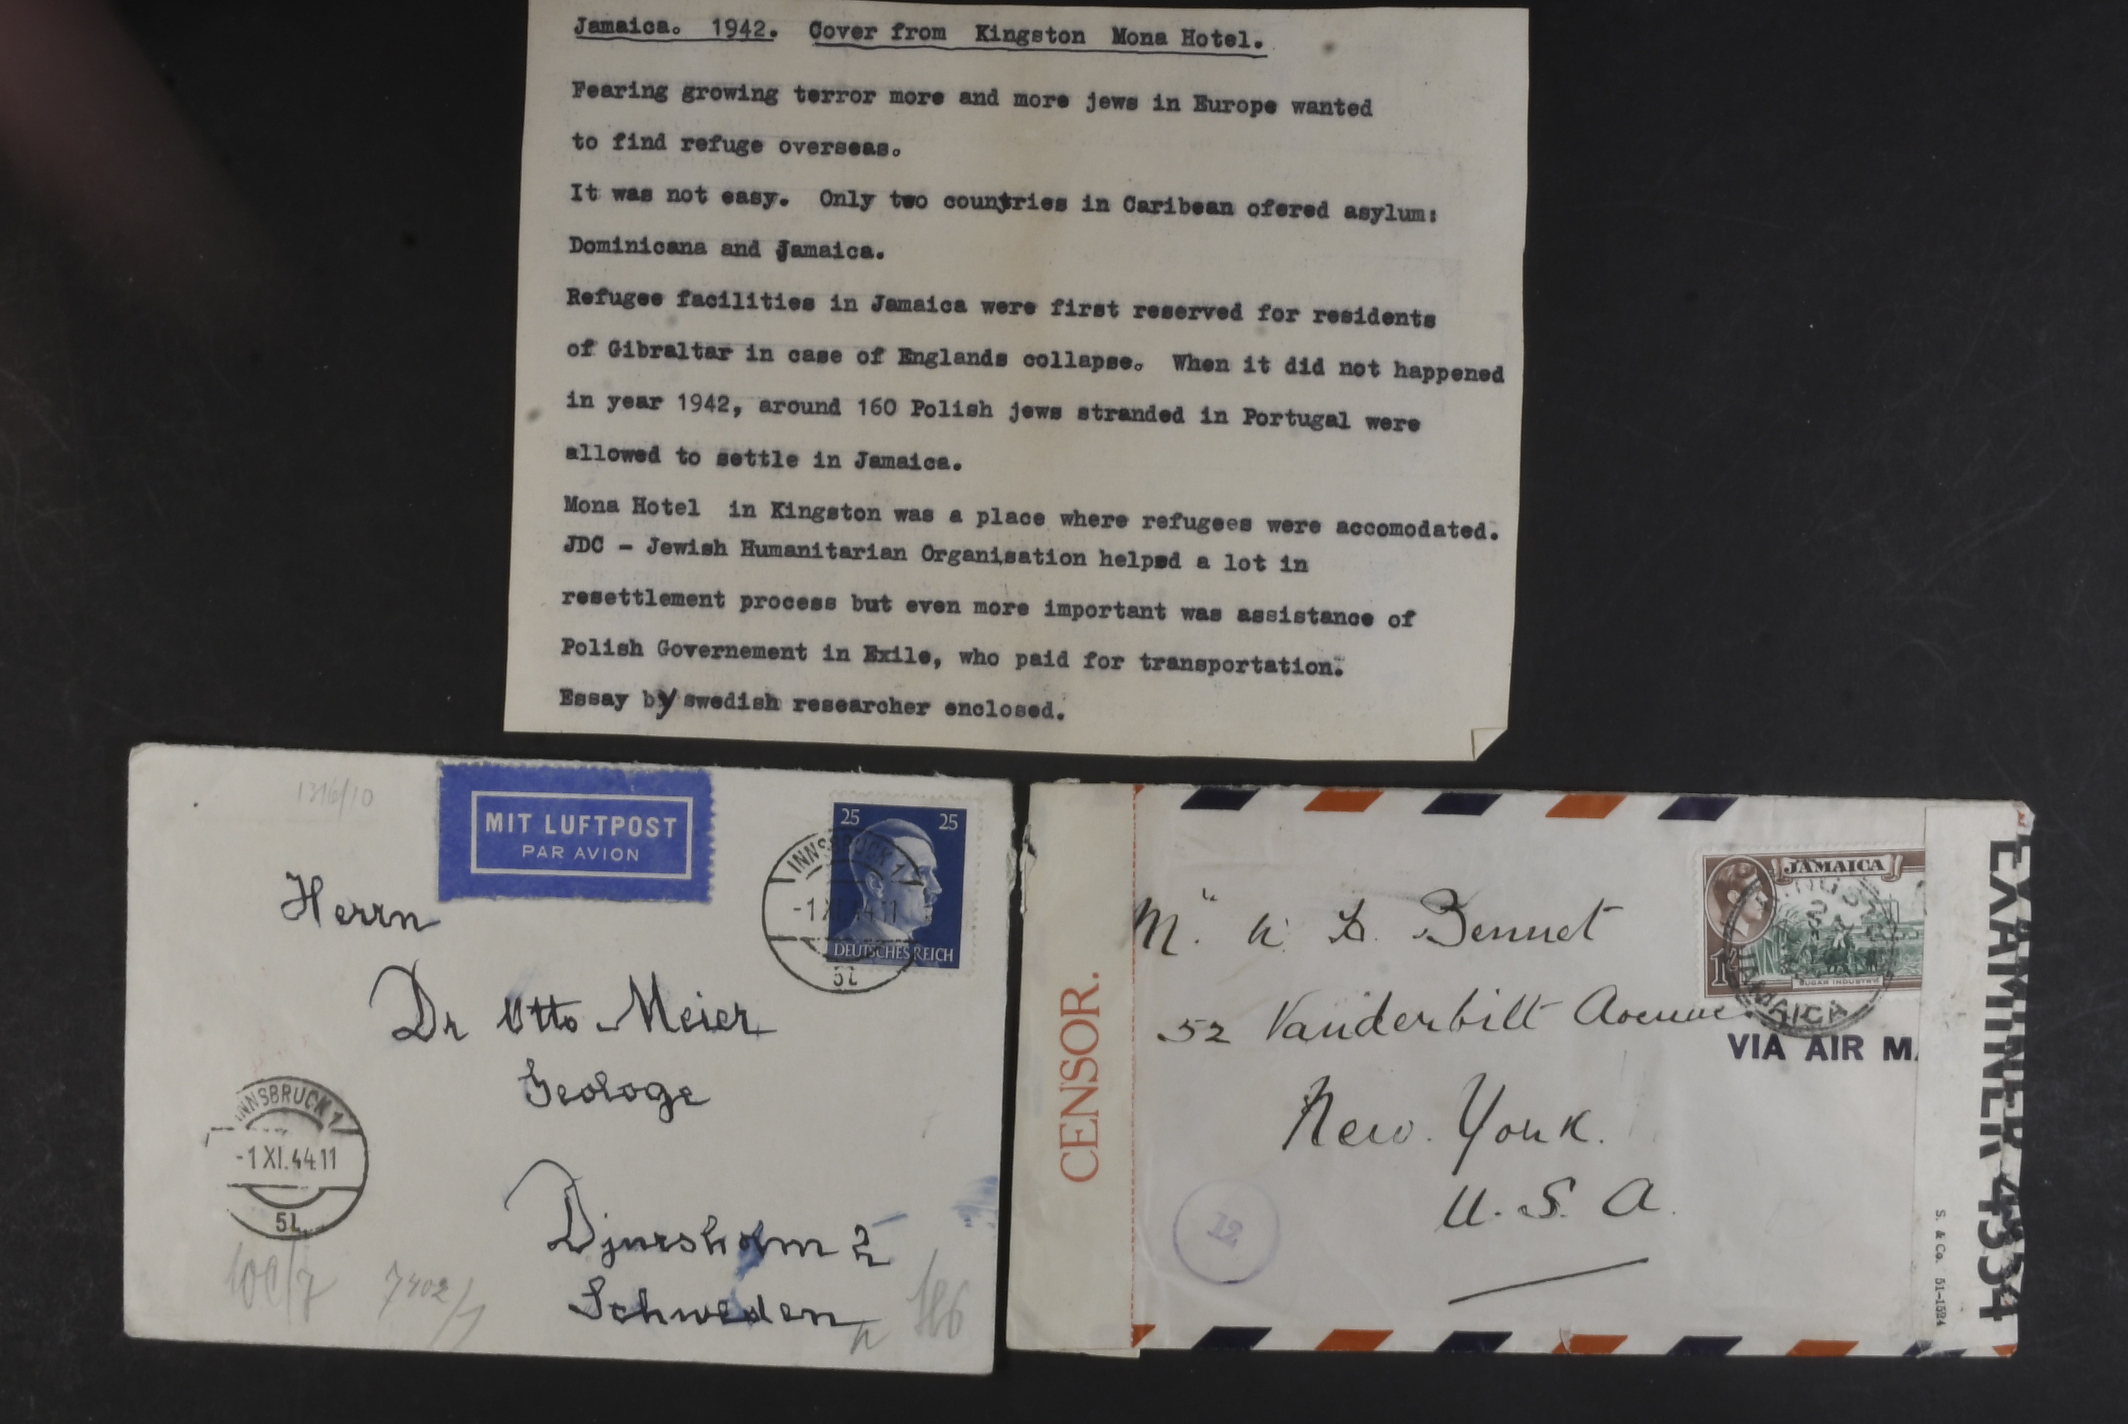 Jamaica. 1942. Cover from Kingston Mona Hotel.
Fearing growing terror more and more jews in Europe wanted
to find refuge overseas.
It was not easy. Only two countries in Caribean ofered asylum:
Dominicana and Jamaica.
Refugee facilities in Jamaica were first reserved for residents
of Gibraltar in case of Englands collapse. When it did not happened
in year 1942, around 160 Polish jews stranded in Portugal were
allowed to settle in Jamaica.
Mona Hotel in Kingston was a place where refugees were accomodated.
JDC - Jewish Humanitarian Organisation helped a lot in
resettlement process but even more important was assistance of
Polish Governement in Exile, who paid for transportation.
Essay by swedish researcher enclosed.
1316/10
MIT LUFTPOST
PAR AVION
25 25
DEUTSCHES REICH
INNSBRUCK 1
-1 XI. 44 11
Herrn
Dr Otto Meier
Geologe
Djursholm 2
Schweden
INNSBRUCK 1
-1 XI. 44 11
7402/1
CENSOR.
JAMAICA
SUGAR INDUSTRY
JAMAICA
Bennet
52 Vanderbilt Avenue
New York.
U. S. A.
VIA AIR MA
12
EXAMINER 4334
S. & Co. 51-1524